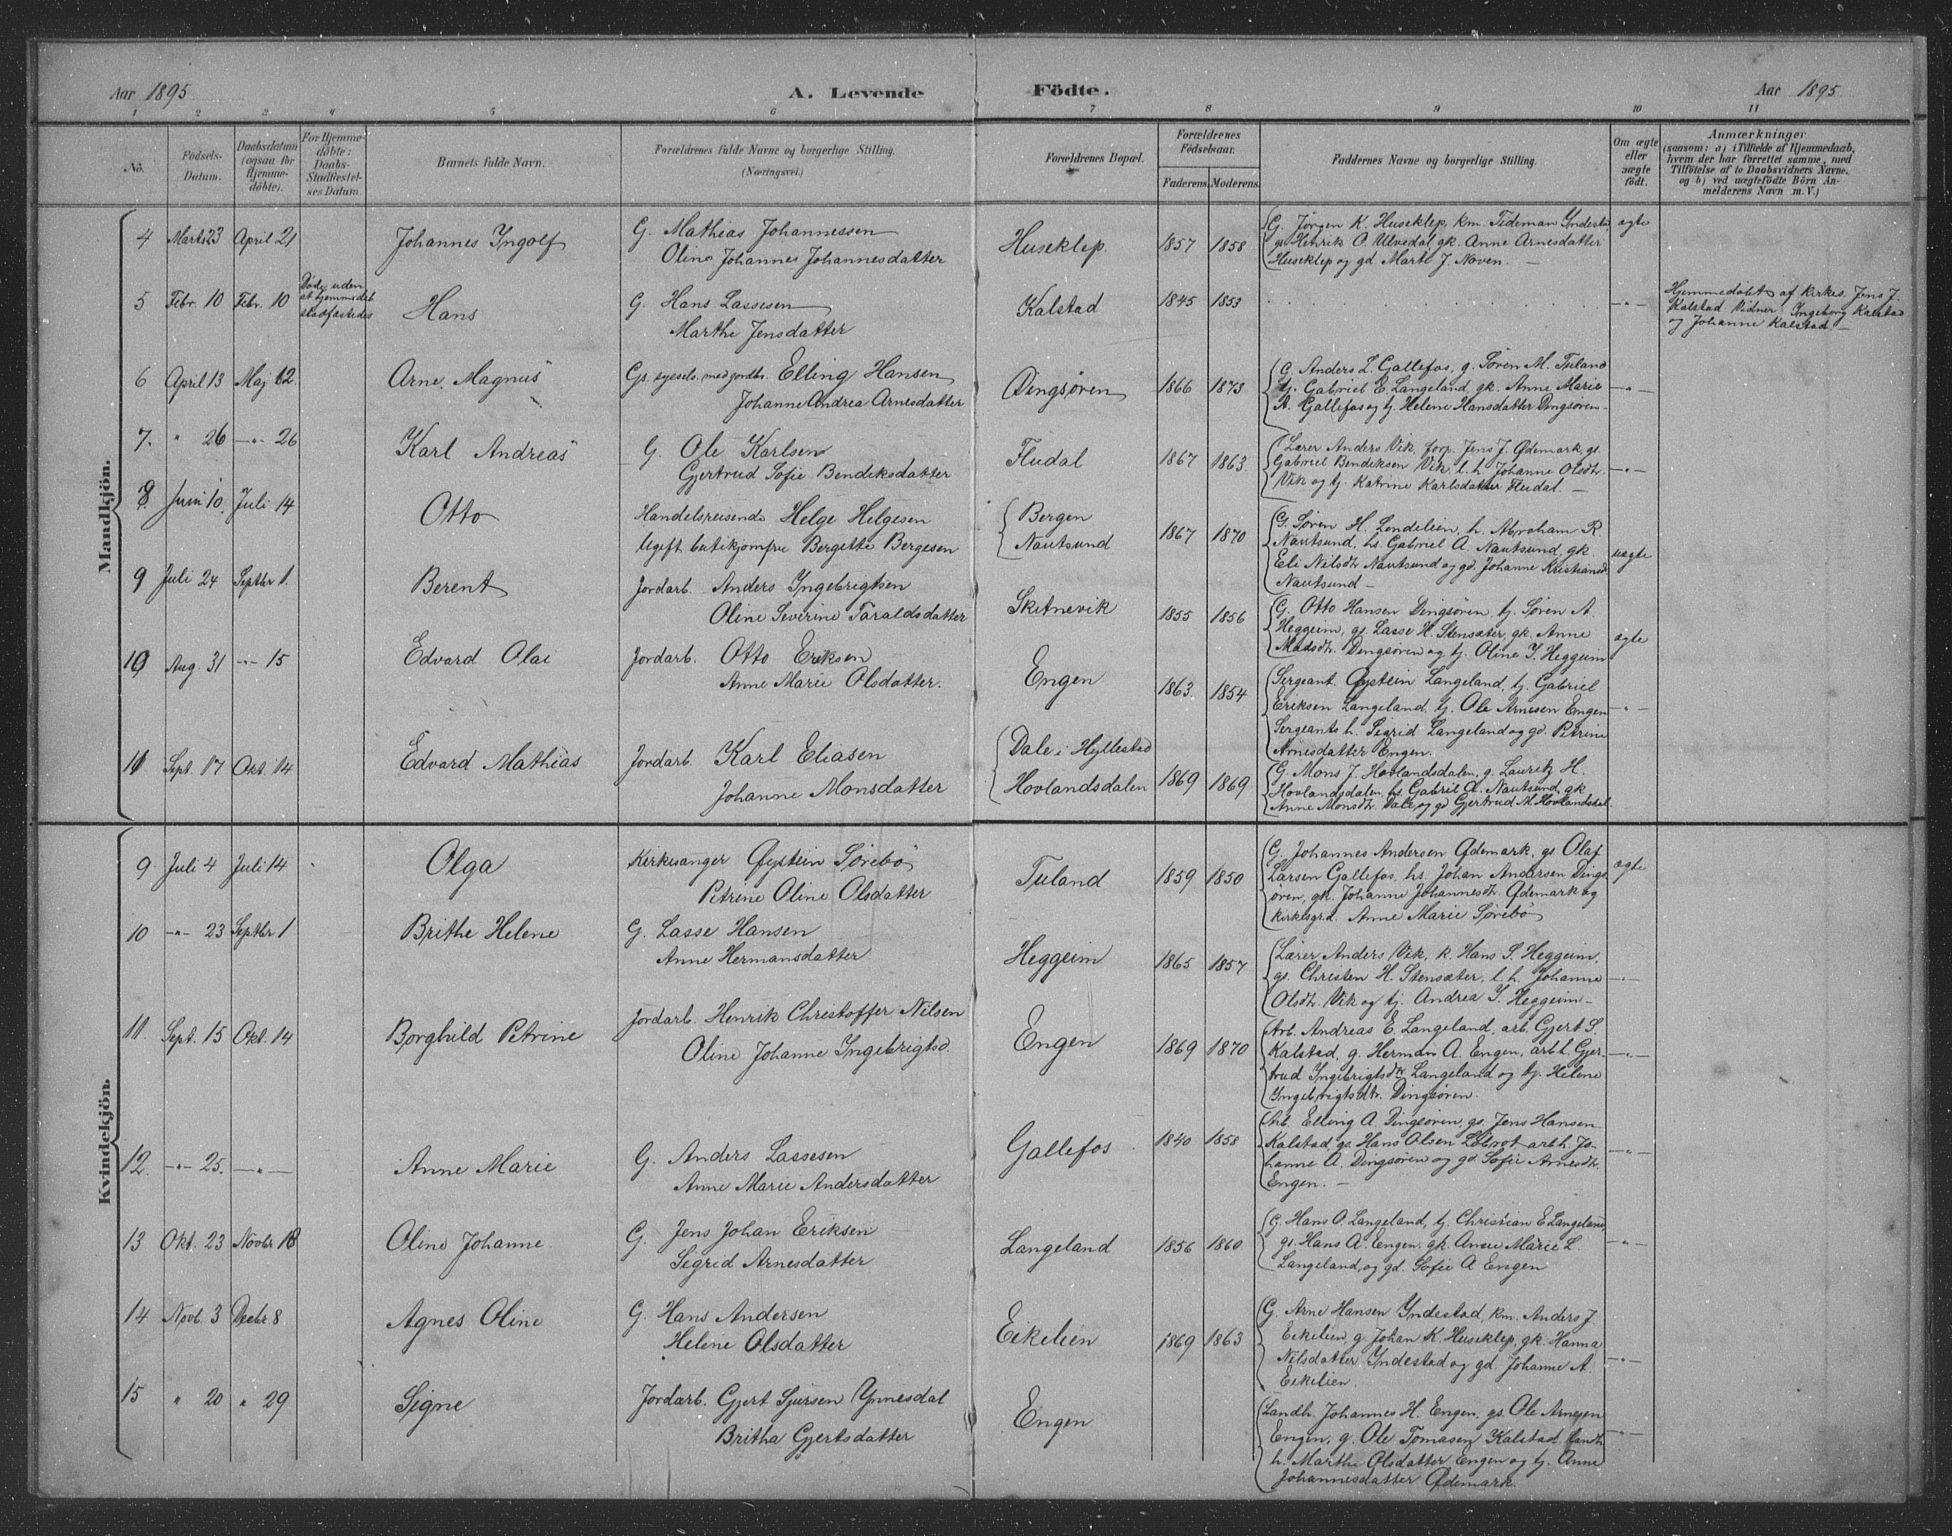 Aar 1895 A. Levende Födte. Aar 1895
1 2 3 4 5 6 7 8 9 10 11
No. Födsels-Datum. Daabsdatum (ogsaa for Hjemmedöbte). For Hjemmedöbte: Daabs-Stadfæstelses Datum. Barnets fulde Navn. Forældrenes fulde Navne og borgerlige Stilling. (Næringsvei.) Forældrenes Bopæl. Forældrenes Födselsaar. Faderens. Moderens. Faddernes Navne og borgerlige Stilling. Om ægte eller uægte födt. Anmærkninger (saasom: a) i Tilfælde af Hjemmedaab, hvem der har forrettet samme, med Tilföielse af to Daabsvidners Navne, og b) ved uægtefödte Börn Anmelderens Navn m. V.)
Mandkjön.
4 Marts 23 April 21 Johannes Ingolf G. Mathias Johannessen
Oline Johannes Johannesdatter
Huseklep 1857 1858
G. Jørgen K. Huseklep, km. Tideman Yndestad
gs. Henrik O. Ulvedal, gk. Anne Arnesdatter
Huseklep og gd. Marte J. Noven. —
ægte
5 Febr. 10 Febr. 10 Døde uden
at hjemmedåb
stadfæstedes
Hans G. Hans Lassesen
Marthe Jensdatter
Kalstad 1845 1853 — " —
Hjemmedøbt af Kirkes. Jens J.
Kalstad Vidner Ingeborg Kalstad
og Johanne Kalstad —
6 April 13 Maj 12. Arne Magnus Gs. sysels. med jordbr. Elling Hansen
Johanne Andrea Arnesdatter
Dingsøren 1866 1873
G. Anders L. Gallefos, g. Søren M. Tuland
tj. Gabriel E. Langeland, gk. Anne Marie
A. Gallefos og tj. Helene Hansdatter Dingsøren
— " —
7. " 26 — " — 26 Karl Andreas G. Ole Karlsen
Gjertrud Sofie Bendiksdatter
Fludal 1867 1863
Lærer Anders Vik, forp. Jens J. Ødemark, gs.
Gabriel Bendiksen Vik, l. h. Johanne Olsdtr.
Vik og tj. Katrine Karlsdatter Fludal. —
— " —
8 Juni 10. Juli 14 Otto Handelsreisende Helge Helgesen
Ugift butikjomfru Bergitte Bergesen
Bergen
Nautsund
1867 1870
G. Søren H. Lendelien, h. Abraham R.
Nautsund, hs. Gabriel A. Nautsund, gk.
Eli Nilsdtr. Nautsund og gd. Johanne Kristiansd
Nautsund —
uægte
9 Juli 24 Septbr 1. Berent Jordarb. Anders Ingebrigtsen
Oline Severine Taraldsdatter
Skitnevik 1855 1856
G. Otto Hansen Dingsøren, tj. Søren A.
Heggeim, gs. Lasse H. Stensæter, gk. Anne
Madsdtr. Dingsøren og tj. Oline I. Heggeim
ægte
10 Aug. 31 — " — 15 Edvard Olai Jordarb. Otto Eriksen
Anne Marie Olsdatter.
Engen 1863. 1854
Sergeant Øystein Langeland, tj. Gabriel
Eriksen Langeland, tj. Ole Arnesen Engen
Sergeants h. Sigrid Langeland og gd. Petrine
Arnesdatter Engen.
— " —
11 Sept. 17 Okt. 14 Edvard Mathias Jordarb. Karl Eliasen
Johanne Monsdatter
Dale i Hyllestad
Hovlandsdalen
1869 1869
G. Mons J. Hovlandsdalen, g. Lauritz H.
Hovlandsdalen, hs. Gabriel A. Nautsund, gk
Anne Monsdtr. Dale og gd Gjertrud M Hovlandsdal.
Kvindekjön.
9 Juli 4 Juli 14 Olga Kirkesanger Øystein Sørebø
Petrine Oline Olsdatter
Tuland 1859 1850
G. Johannes Andersen Ødemark, gs Olaf
Larsen Gallefos, hs. Johan Andersen Dings
øren, gk. Johanne Johannesdtr. Ødemark og
kirkesgr.d. Anne Marie Sørebø
ægte
10 — " — 23 Septbr 1 Brithe Helene G. Lasse Hansen
Anne Hermansdatter
Heggeim 1865 1857
Lærer Anders Vik, k. Hans S. Heggeim,
gs. Christen H. Stensæter, l. h. Johanne
Olsdtr. Vik og tj. Andrea I. Heggeim —
— " —
11. Sept. 15 Okt. 14 Borghild Petrine Jordarb. Henrik Christoffer Nilsen
Oline Johanne Ingebrigtsd.
Engen 1869 1870
Arb. Andreas E. Langeland, arb. Gjert S.
Kalstad, g. Herman A. Engen, arb.h. Gjer-
trud Ingebrigtsdtr. Langeland og tj. Helene
Ingebrigtsdtr. Dingsøren.
— " —
12. — " — 25. — " — Anne Marie G. Anders Lassesen
Anne Marie Andersdatter
Gallefos 1840 1858
Arb. Elling A. Dingsøren, gs. Jens Hansen
Kalstad, gs. Hans Olsen Løbrot arb h. Jo-
hanne A. Dingsøren og gd. Sofie Arnesdtr.
Engen. —
— " —
13 Okt. 23 Novbr 18 Oline Johanne G. Jens Johan Eriksen
Sigrid Arnesdatter
Langeland 1856 1860
G. Hans O. Langeland, tj. Christian E Langeland
gs. Hans A. Engen gk. Anne Marie L.
Langeland, og gd. Sofie A Engen
— " —
14 Novb. 3 Decbr 8 Agnes Oline G. Hans Andersen
Helene Olsdatter
Eikelien 1869 1863
G. Arne Hansen Yndestad, km. Anders J.
Eikelien, g. Johan K. Huseklep, gk. Hanna
Nilsdatter Indestad og gd. Johanne A.
Eikelien.
— " —
15 " 20 " 29 Signe Jordarb. Gjert Sjursen Ynnesdal
Britha Gjertsdatter
Engen
Landh. Johannes H. Engen, gs. Ole Arnesen
Engen, g. Ole Tomasen Kalstad landh
h. Marthe Olsdatter Engen og tj. Anne
Johannesdatter Ødemark.
— " —